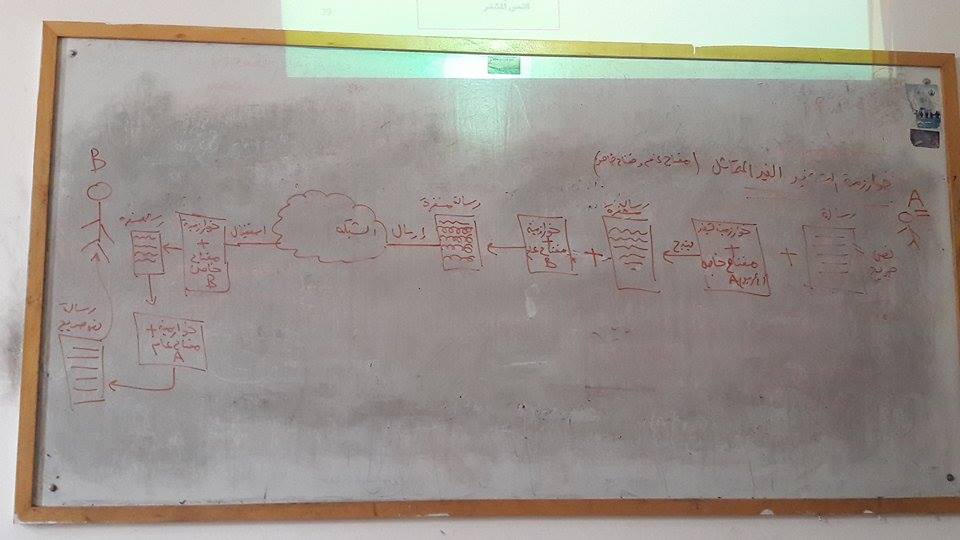 كنص للشفر
39
خوارزمية التشفير الغير المتماثل (مفتاح عام، مفتاح خاص)
A
رسالة
نص
صريح
+
خوارزمية تشفير
+
مفتاح خاص
A
ينتج
رسالة
مشفرة
+
خوارزمية
+
مفتاح عام
B
رسالة مشفرة
إرسال
الشبكة
استقبال
خوارزمية
+
مفتاح
خاص
B
رسالة مشفرة
B
خوارزمية +
مفتاح عام
A
رسالة
نص صريح